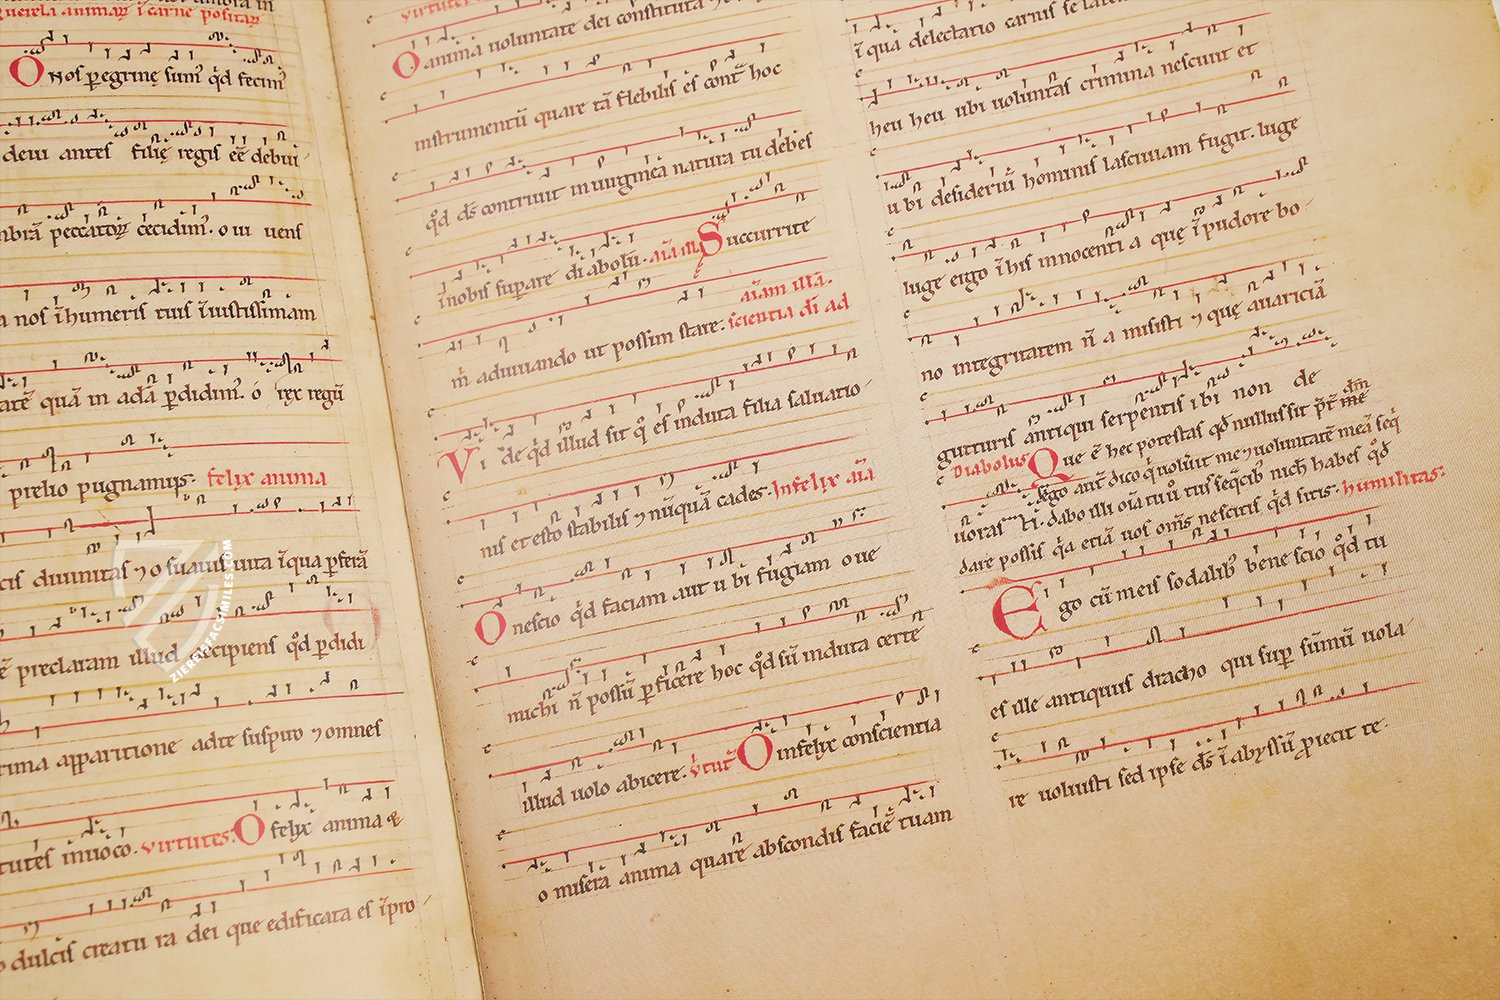 Querela animarū ī carne positarū
O Nos peregrinę sumꝰ qͥd fecimꝰ
deui antes filię regis eē debui
umbrā peccatoꝝ cecidimꝰ. o ui uens
a nos ī humeris tuis ī iustissimam
quā in adā pdidimꝰ. ó rex regū
prelio pugnamus. felix anima
cis diuinitas ⁊ o suauis uita ī qua pferā
preclaram illud accipiens qͦd pdidi
rima apparitione ad te suspiro ⁊ omnes
tutes inuoco. virtutes. O felix anima &
o dulcis creatu ra dei que edificata es ī pro
virtutes
O anima uoluntate dei constituta
instrumentū quare tā flebilis es contͣ hoc
qͦd ds̄ contriuit in uirginea natura tu debes
ī nobis supare di abolū. aīa Succurrite
m̄ adiuuando ut possim stare. aīam illa.
scientia dī ad
Vi de qͥd illud sit qͦ es induta filia saluatio
nis et esto stabilis ⁊ nūquā cades. Infelix aīa
O nescio qͥd faciam aut u bi fugiam o ue
michi n̄ possū pficere hoc qͦd sū induta certe
illud uolo abicere. O infelix conscientia
o misera anima quare abscondis faciē tuam
ī quā delectatio carnis se
heu heu ubi uoluntas crimina nesciuit et
u bi desideriū hominis lasciuiam fugit. luge
luge ergo ī his innocenti a quę ī pudore bo
no integritatem n̄ a misisti ⁊ quę auariciā
gutturis antiqui serpentis i bi non de
Diabolus Que ē hec potestas qd nullus sit pt̄
uoras ti. ego aut̄ dico qͥ uoluit me ⁊ uoluntatē meā seq̄
dabo illi oīa tu u̇ tuis seqͥcibꝰ nich̄ habes qͦd
dare possis qͥa etiā uos om̄s nescitis qͥd sitis. humilitas.
Ego cū meis sodalibꝰ bene scio qͦd tu
es ille antiquus dracho qui sup sūmū uola
re uoluisti sed ipse ds̄ ī abyssū piecit te.
ZIEREIFACSIMILES.COM